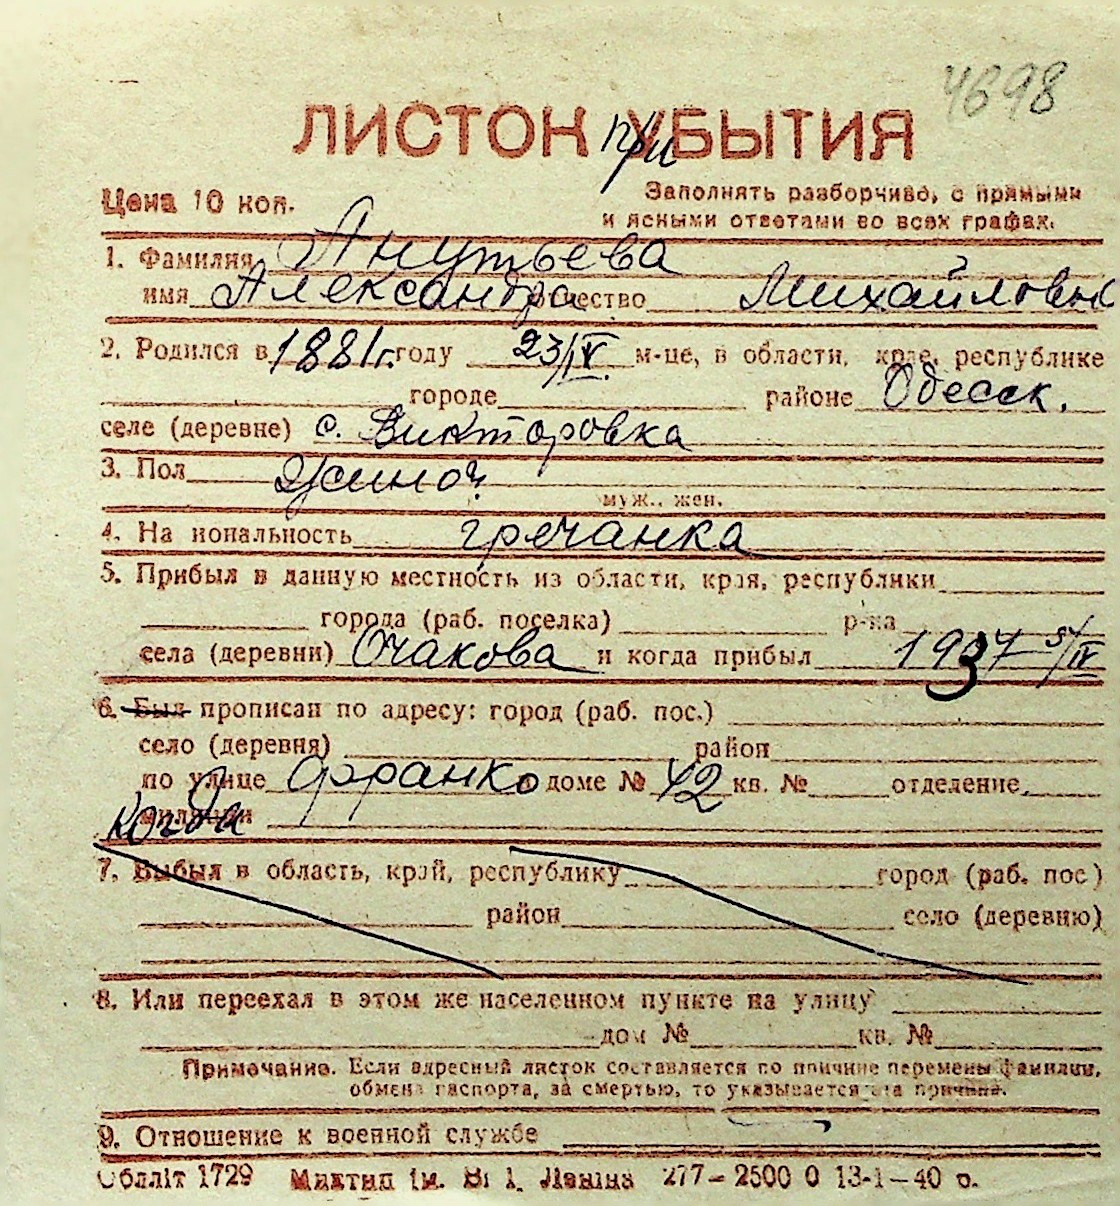 4698
ЛИСТОК УБЫТИЯ
при
Цена 10 коп.
Заполнять разборчиво, с прямыми
и ясными ответами во всех графах.
1. Фамилия Анутьева
имя Александра отчество Михайловн
2. Родился в 1881г. году 23/IV м-це, в области, крае, республике
городе районе Одесск.
селе (деревне) с. Викторовка
3. Пол
муж., жен.
4. На иональность гречанка
5. Прибыл в данную местность из области, края, республики
города (раб. поселка) р-на
села (деревни) Очакова и когда прибыл 1937 5/IV
6. Был прописан по адресу: город (раб. пос.)
село (деревня) район
по улице Франко доме № 42 кв. № отделение
милиции
когда
7. Выбыл в область, край, республику город (раб. пос)
район село (деревню)
8. Или переехал в этом же населенном пункте на улицу
дом № кв. №
Примечание. Если адресный листок составляется по причине перемены фамилии,
обмена паспорта, за смертью, то указывается эта причина.
9. Отношение к военной службе
Обллiт 1729 Миктип iм. В. I. Ленiна 277—2500 0 13-1—40 р.